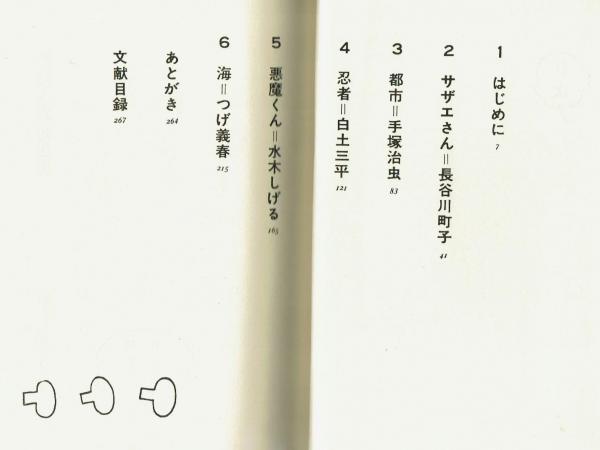 1 はじめに 7
2 サザエさん＝長谷川町子 41
3 都市＝手塚治虫 83
4 忍者＝白土三平 121
5 悪魔くん＝水木しげる 165
6 海＝つげ義春 215
あとがき 264
文献目録 267